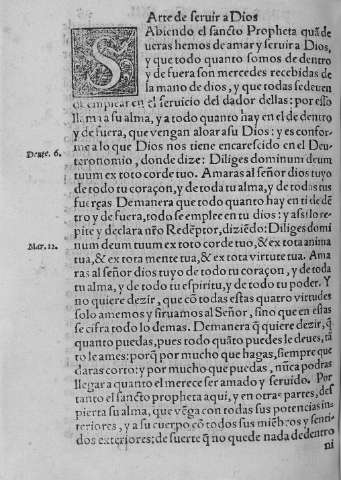 Arte de seruir a Dios
SAbiendo el sancto Propheta quã de
ueras hemos de amar y seruir a Dios,
y que todo quanto somos de dentro
y de fuera son mercedes recebidas de
la mano de dios, y que todas se deuen
emplear en el seruicio del dador dellas: por esso
llama a su alma, y a todo quanto hay en el de dentro
y de fuera, que vengan a loar a su Dios: y es confor-
me a lo que Dios nos tiene encarescido en el Deu-
Deute. 6.
teronomio, donde dize: Diliges dominum deum
tuum ex toto corde tuo. Amaras al señor dios tuyo
de todo tu coraçon, y de toda tu alma, y de todas tus
fuerças Demanera que todo quanto hay en ti de dẽ
tro y de fuera, todo se emplee en tu dios: y assi lo re-
pite y declara nr̃o Redẽptor, diziẽdo: Diliges domi
Mar. 12.
num deum tuum ex toto corde tuo, & ex tota anima
tua, & ex tota mente tua, & ex tota virtute tua. Ama
ras al señor dios tuyo de todo tu coraçon, y de toda
tu alma, y de todo tu espiritu, y de todo tu poder. Y
no quiere dezir, que cõ todas estas quatro virtudes
solo amemos y siruamos al Señor, sino que en estas
se cifra todo lo demas. Demanera q̃ quiere dezir, q̃
quanto puedas, pues todo quãto puedes le deues, tã
to le ames: porq̃ por mucho que hagas, siempre que
daras corto: y por mucho que puedas, nũca podras
llegar a quanto el merece ser amado y seruido. Por
tanto el sancto propheta aqui, y en otras partes, des
pierta su alma, que vẽga con todas sus potencias in-
teriores, y a su cuerpo cõ todos sus miẽbros y senti-
dos exteriores: de suerte q̃ no quede nada de dentro
ni